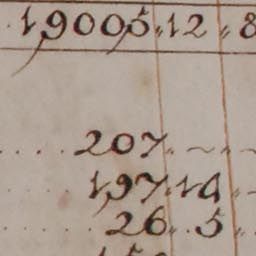 19005.. 12.. 8
207.. ~.. ~
197.. 14.. ~
26.. 5..